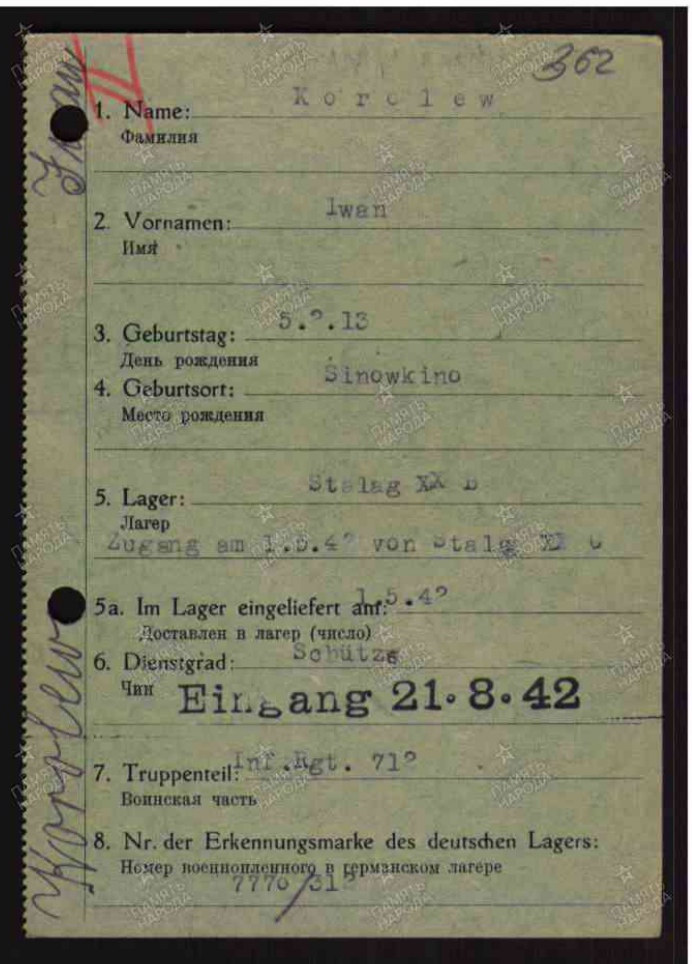 362
1. Name: Korolew
Фамилия
2. Vornamen: Iwan
Имя
3. Geburtstag: 5.2.13
День рождения
4. Geburtsort: Sinowkino
Место рождения
5. Lager: Stalag XX B
Лагер
Zugang am 1.5.42 von Stalag
5a. Im Lager eingeliefert am: 1.5.42
Доставлен в лагер (число)
6. Dienstgrad: Schütze
Чин
Eingang 21.8.42
7. Truppenteil: Inf.Rgt. 712
Воинская часть
8. Nr. der Erkennungsmarke des deutschen Lagers:
Номер военнопленного в германском лагере
7770/312
ПАМЯТЬ
НАРОДА